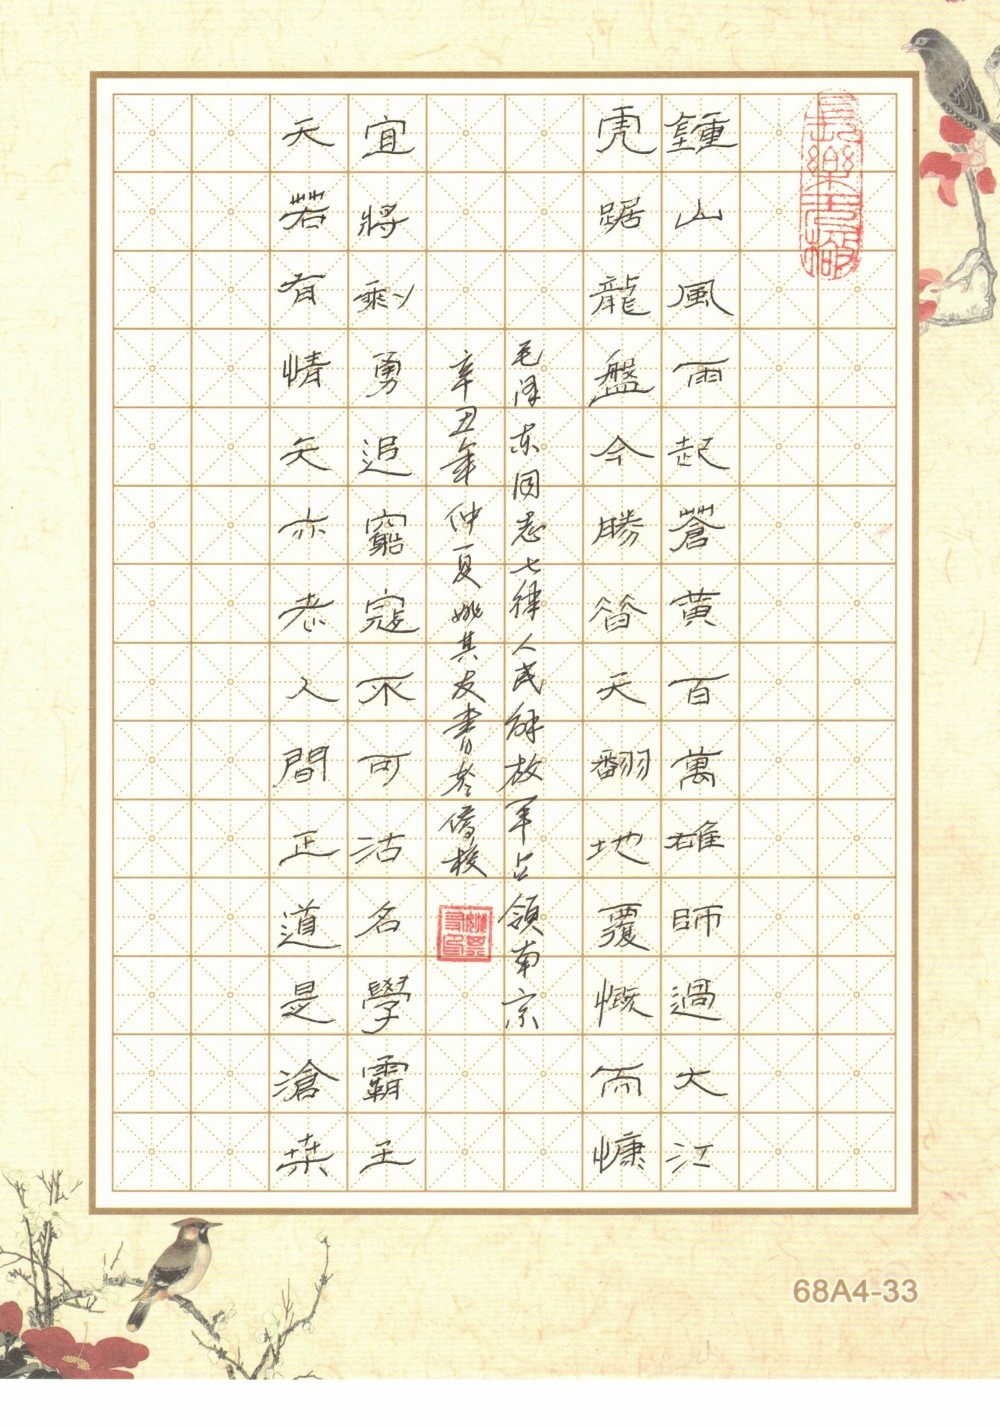 鍾山風雨起蒼黃百萬雄師過大江
虎踞龍盤今勝昝天翻地覆慨而慷
毛泽东同志七律人民解放军占领南京
辛丑年仲夏姚其友書於
宜將剩勇追窮寇不可沽名學霸王
天若有情天亦老人間正道是滄桒
68A4-33